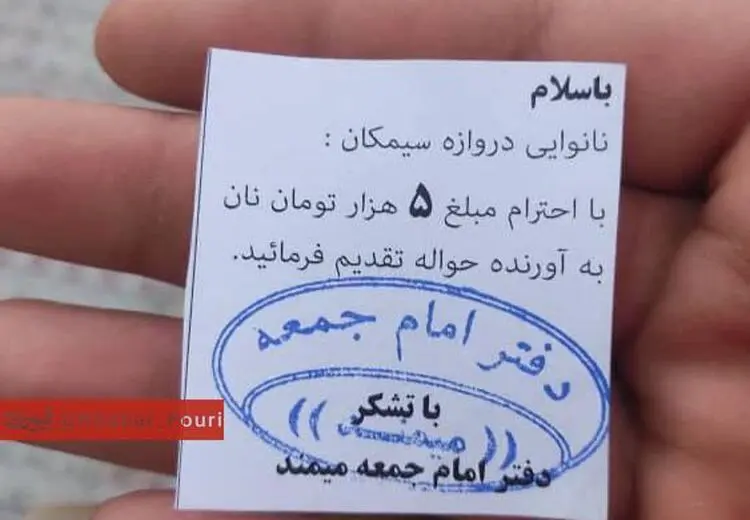 باسلام
نانوایی دروازه سیمکان :
با احترام مبلغ ۵ هزار تومان نان
به آورنده حواله تقدیم فرمائید.
دفتر امام جمعه
با تشکر
دفتر امام جمعه میمند
ouri